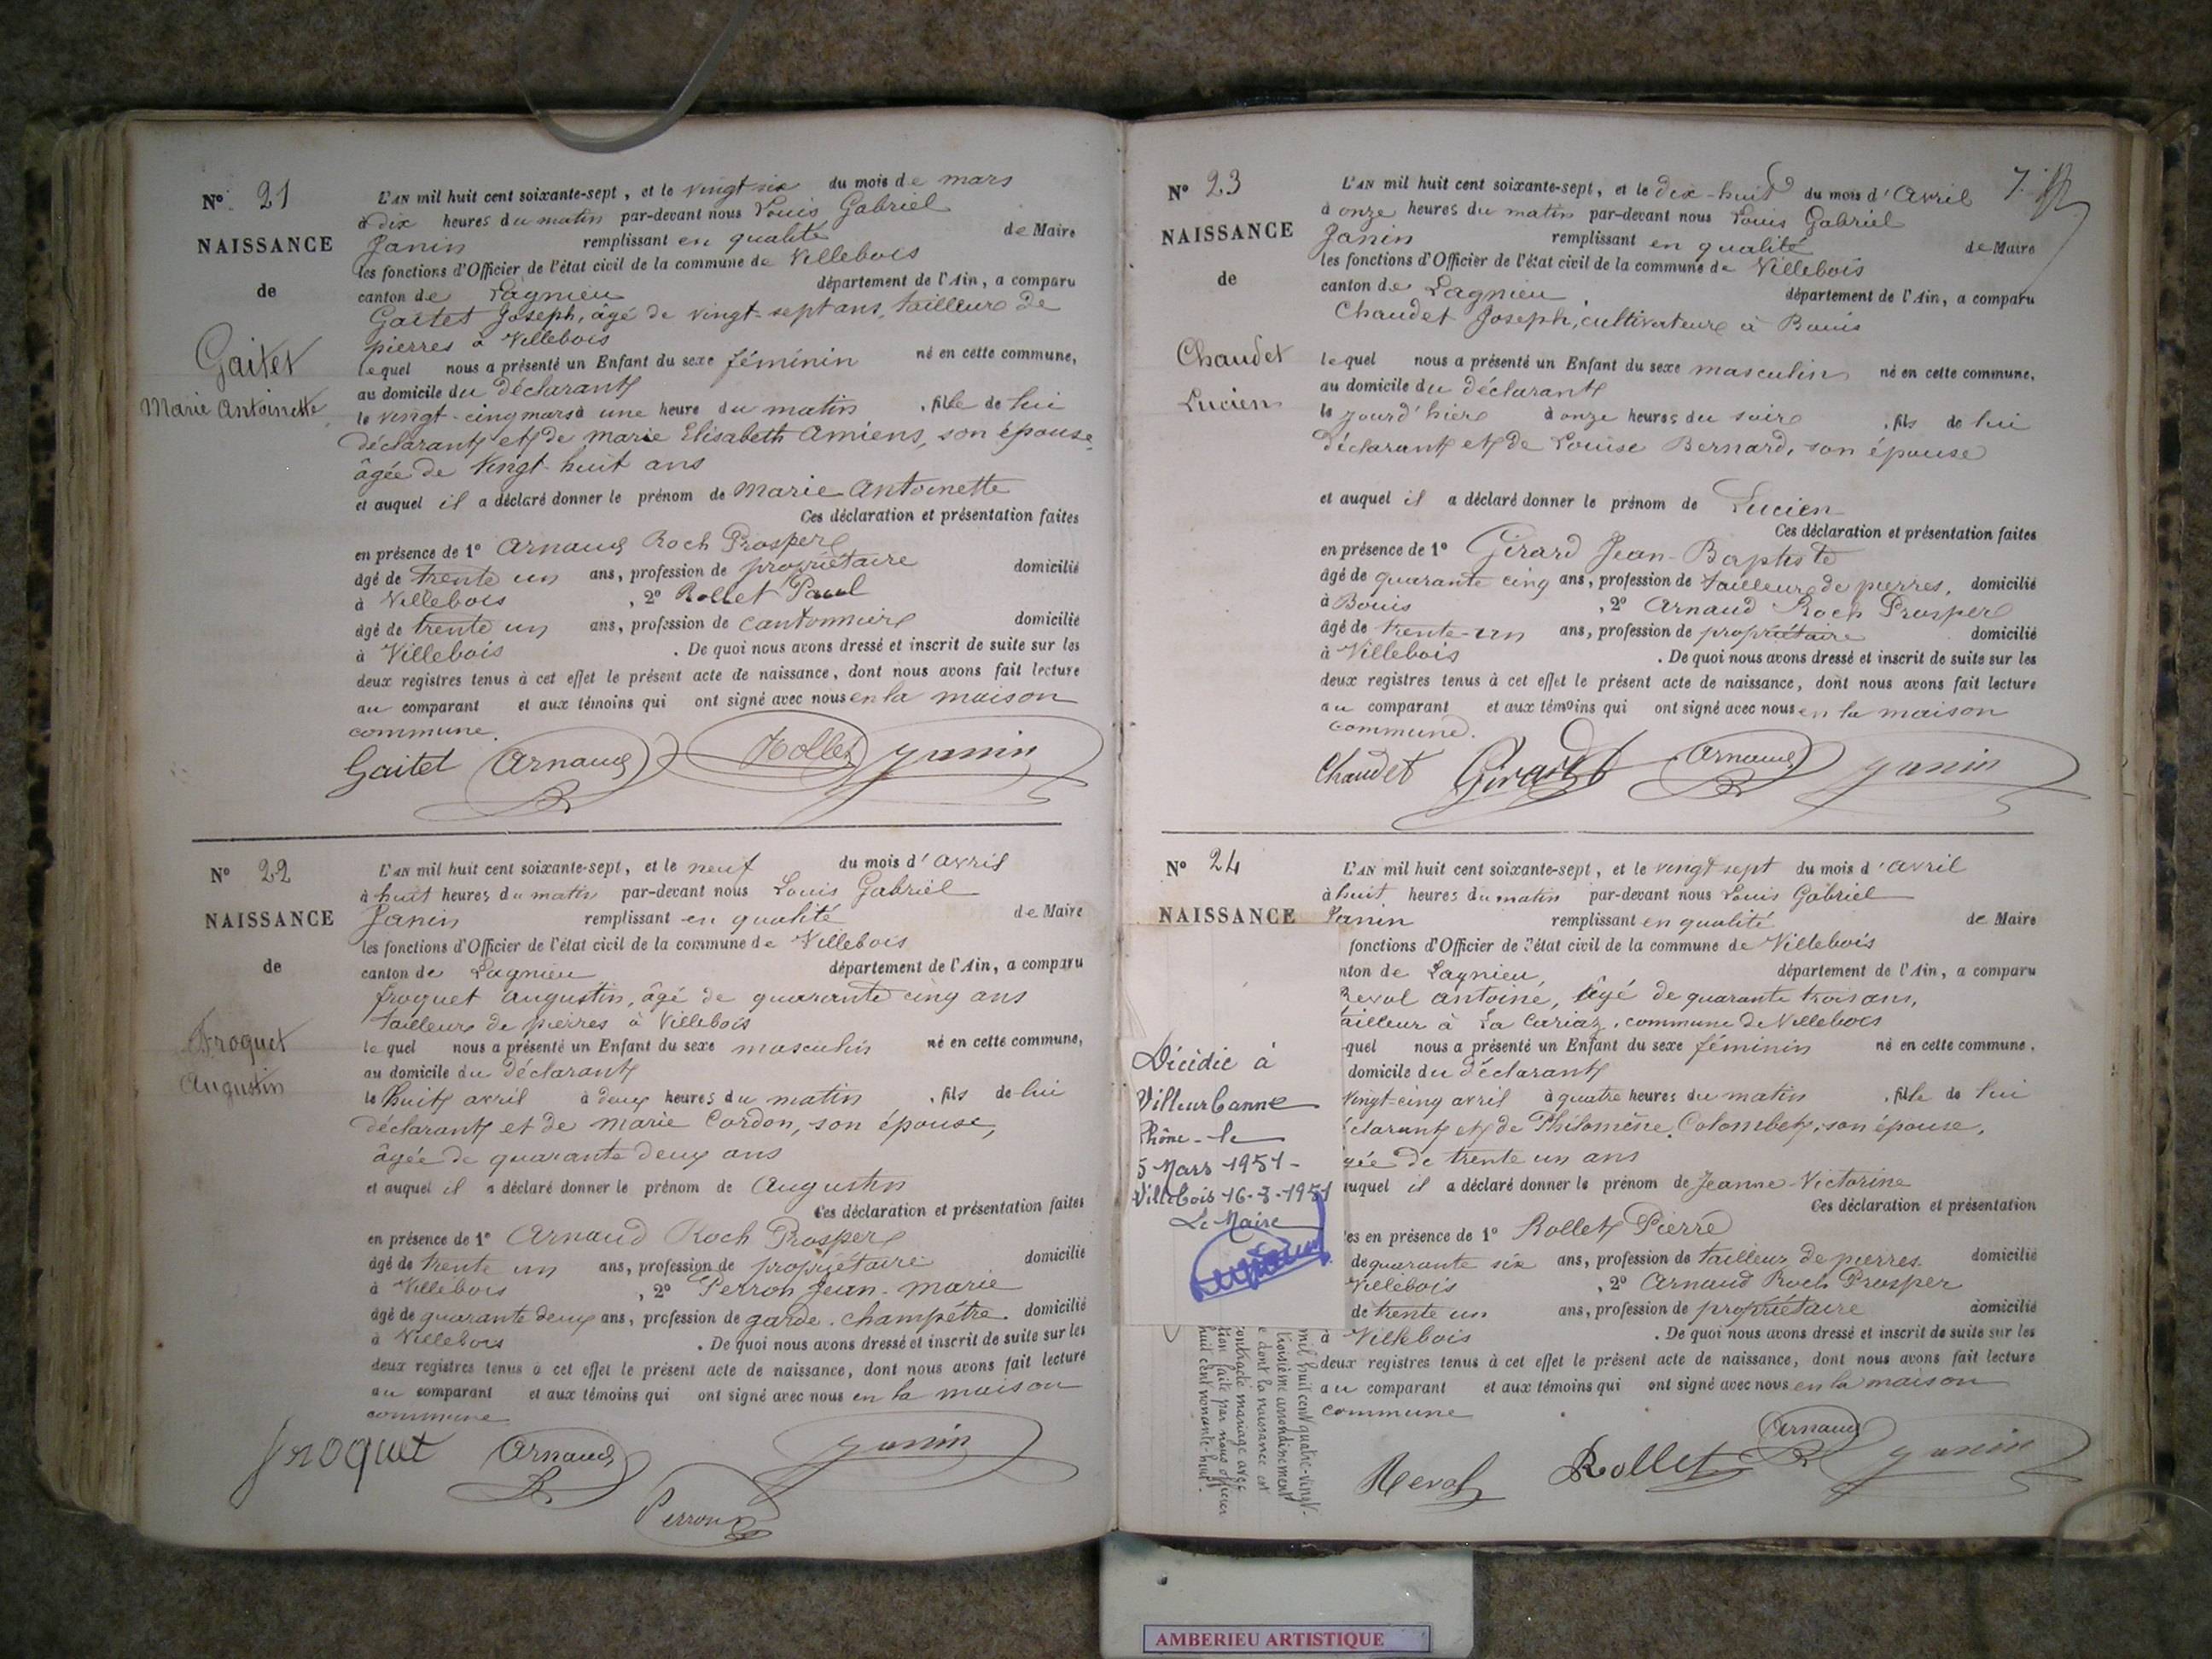 N° 21
NAISSANCE
de
Gaitet
Marie Antoinette
L'AN mil huit cent soixante-sept, et le vingt six du mois de mars
à dix heures du matin par-devant nous Louis Gabriel
Janin remplissant en qualité de Maire
les fonctions d'Officier de l'état civil de la commune de Villebois
canton de Lagnieu département de l'Ain, a comparu
Gaitet Joseph, âgé de vingt-sept ans, tailleur de
pierres à Villebois
lequel nous a présenté un Enfant du sexe féminin né en cette commune,
au domicile du déclarant
le vingt-cinq mars à une heure du matin , fille de lui
déclarant et de marie Elisabeth Amiens, son épouse
âgée de vingt-huit ans
et auquel il a déclaré donner le prénom de Marie Antoinette
Ces déclaration et présentation faites
en présence de 1° Arnaud Roch Prosper
âgé de trente un ans, profession de propriétaire domicilié
à Villebois , 2° Rollet Paul
âgé de trente un ans, profession de cantonnier domicilié
à Villebois . De quoi nous avons dressé et inscrit de suite sur les
deux registres tenus à cet effet le présent acte de naissance, dont nous avons fait lecture
au comparant et aux témoins qui ont signé avec nous en la maison
commune.
Gaitet Arnaud Rollet Janin
N° 22
NAISSANCE
de
Froquet
Augustin
L'AN mil huit cent soixante-sept, et le neuf du mois d'avril
à huit heures du matin par-devant nous Louis Gabriel
Janin remplissant en qualité de Maire
les fonctions d'Officier de l'état civil de la commune de Villebois
canton de Lagnieu département de l'Ain, a comparu
froquet augustin, âgé de quarante cinq ans
tailleur de pierres à Villebois
lequel nous a présenté un Enfant du sexe masculin né en cette commune,
au domicile du déclarant
le huit avril à deux heures du matin , fils de lui
déclarant et de marie Cordon, son épouse,
âgée de quarante deux ans
et auquel il a déclaré donner le prénom de Augustin
Ces déclaration et présentation faites
en présence de 1° Arnaud Roch Prosper
âgé de trente un ans, profession de propriétaire domicilié
à Villebois , 2° Perron Jean-marie
âgé de quarante deux ans, profession de garde-champêtre domicilié
à Villebois . De quoi nous avons dressé et inscrit de suite sur les
deux registres tenus à cet effet le présent acte de naissance, dont nous avons fait lecture
au comparant et aux témoins qui ont signé avec nous en la maison
commune
froquet Arnaud Janin
Perron
7.
N° 23
NAISSANCE
de
Chaudet
Lucien
L'AN mil huit cent soixante-sept, et le dix-huit du mois d'Avril
à onze heures du matin par-devant nous Louis Gabriel
Janin remplissant en qualité de Maire
les fonctions d'Officier de l'état civil de la commune de Villebois
canton de Lagnieu département de l'Ain, a comparu
Chaudet Joseph, cultivateur à Bouis
lequel nous a présenté un Enfant du sexe masculin né en cette commune,
au domicile du déclarant
le jourd'hier à onze heures du soir , fils de lui
déclarant et de Louise Bernard, son épouse
et auquel il a déclaré donner le prénom de Lucien
Ces déclaration et présentation faites
en présence de 1° Girard Jean-Baptiste
âgé de quarante cinq ans, profession de tailleur de pierres, domicilié
à Bouis , 2° Arnaud Roch Prosper
âgé de trente-un ans, profession de propriétaire domicilié
à Villebois . De quoi nous avons dressé et inscrit de suite sur les
deux registres tenus à cet effet le présent acte de naissance, dont nous avons fait lecture
au comparant et aux témoins qui ont signé avec nous en la maison
commune.
Chaudet Girard Arnaud Janin
N° 24
NAISSANCE
Décédée à
Villeurbanne
Rhône - le
5 Mars 1951 -
Villebois 16-3-1951
Le Maire
L'AN mil huit cent soixante-sept, et le vingt sept du mois d'avril
à huit heures du matin par-devant nous Louis Gabriel
Janin remplissant en qualité de Maire
fonctions d'Officier de l'état civil de la commune de Villebois
nton de Lagnieu, département de l'Ain, a comparu
Reval antoine, âgé de quarante trois ans,
ailleur à La Cariaz, commune de Villebois
quel nous a présenté un Enfant du sexe féminin né en cette commune.
domicile du déclarant
vingt-cinq avril à quatre heures du matin , fille de lui
clarant et de Philomène Colombet, son épouse,
gée de trente un ans
auquel il a déclaré donner le prénom de Jeanne-Victorine
Ces déclaration et présentation
es en présence de 1° Rollet Pierre
de quarante six ans, profession de tailleur de pierres domicilié
Villebois , 2° Arnaud Roch Prosper
de trente un ans, profession de propriétaire domicilié
à Villebois . De quoi nous avons dressé et inscrit de suite sur les
deux registres tenus à cet effet le présent acte de naissance, dont nous avons fait lecture
au comparant et aux témoins qui ont signé avec nous en la maison
commune
mil huit cent quatre-vingt-
troisième arrondissement
e dont la naissance est
contracté mariage avec
tion faite par nous officier
huit cent nonante-huit.
Reval Rollet Arnaud Janin
AMBERIEU ARTISTIQUE